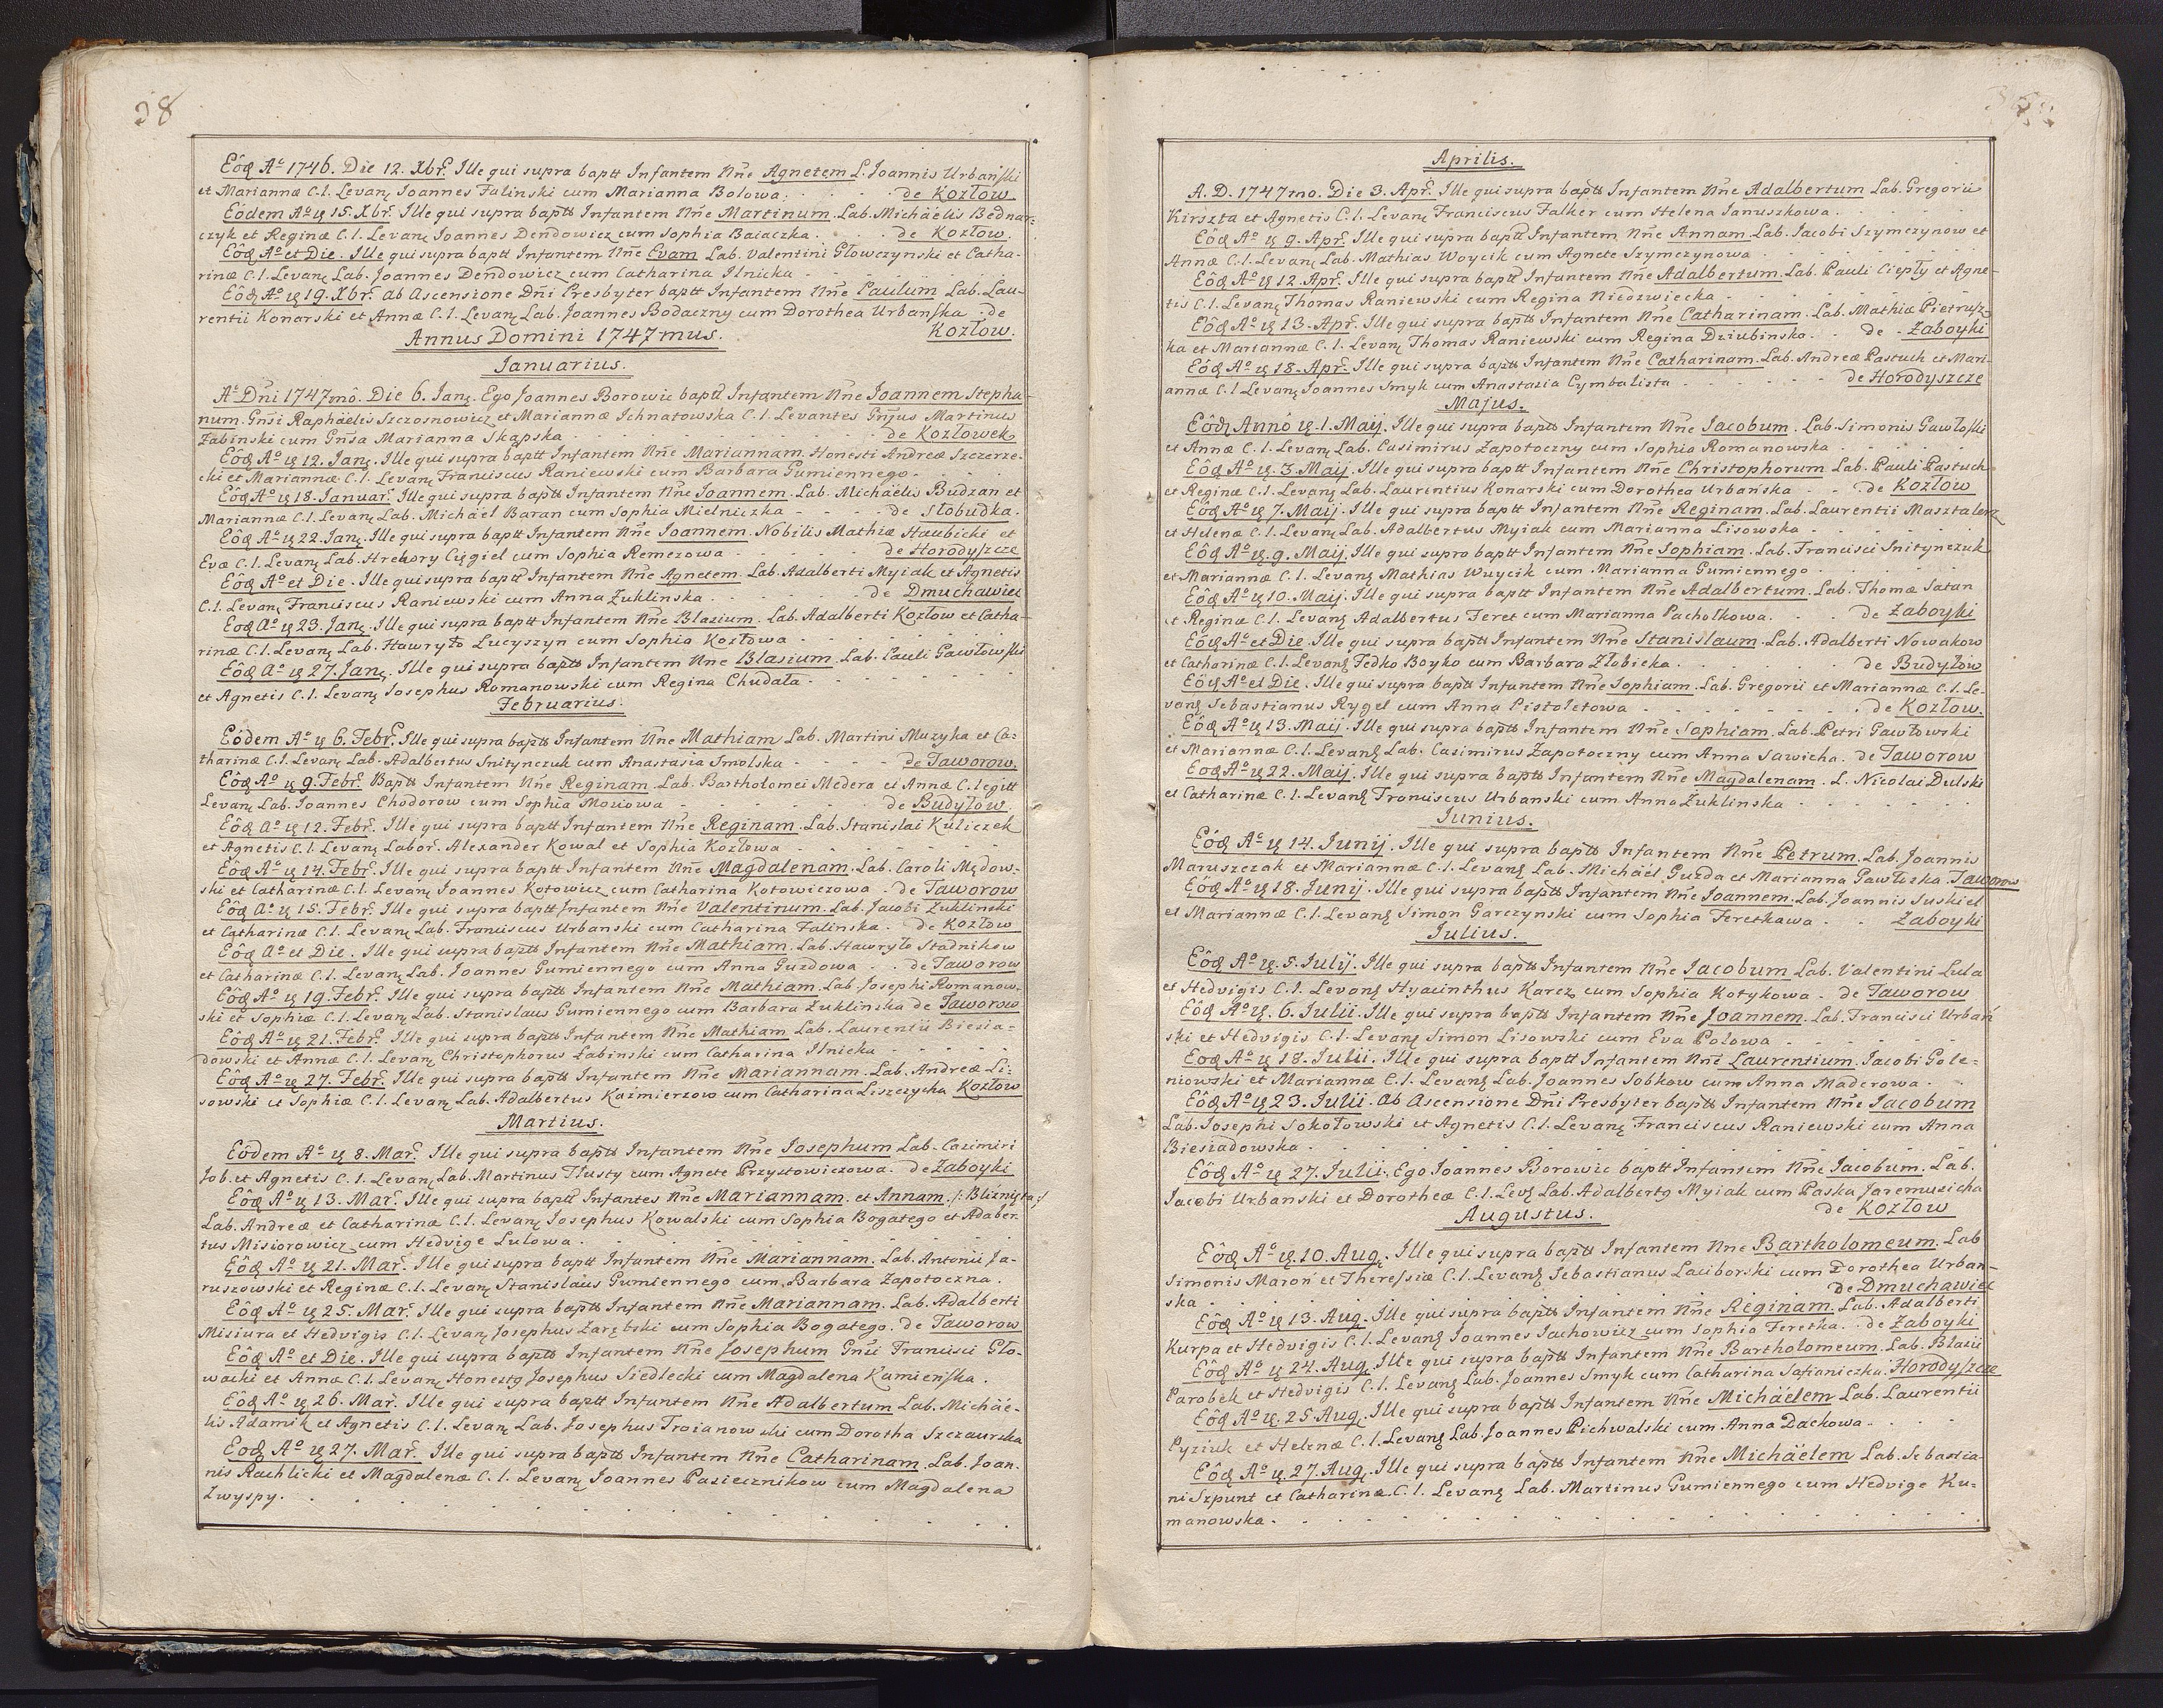 38
Eôđ Aº 1746. Die 12. Xbr̃. Ille qui supra baptt Infantem Nñe Agnetem L. Joannis Urbański
et Mariannæ C.l. Levanꝫ Joannes Falinski cum Marianna Bolowa. de Kozłow.
Eôdem Aº đ 15. Xbr̃. Ille qui supra baptt Infantem Nñe Martinum. Lab. Michäelis Bednar-
czyk et Reginæ C.l. Levanꝫ Joannes Dendowicz cum Sophia Baiaczka. de Kozłow.
Eôđ Aº et Die. Ille qui supra baptt Infantem Nñe Evam Lab. Valentini Głowczynski et Catha-
rinæ C.l. Levanꝫ Lab. Joannes Dendowicz cum Catharina Ilnicka
Eôđ Aº đ 19. Xbr̃. ab Ascensione Dñi Presbyter baptt Infantem Nñe Paulum Lab. Lau-
rentii Konarski et Annæ C.l. Levanꝫ Lab. Joannes Bodaczny cum Dorothea Urbańska de
Kozłow.
Annus Domini 1747mus.
Januarius.
Aº Dñi 1747mô. Die 6. Janꝫ. Ego Joannes Borowic baptt Infantem Nñe Joannem Stepha-
num. Gñsi Raphäelis Szczosnowicz et Mariannæ Ichnatowska C.l. Levantes Gñsus Martinus
Żabinski cum Gñsa Marianna Skąpska de Kozłowek
Eôđ Aº đ 12. Janꝫ. Ille qui supra baptt Infantem Nñe Mariannam. Honesti Andreæ Szczerze-
cki et Mariannæ C.l. Levanꝫ Franciscus Raniewski cum Barbara Gumiennego.
Eôđ Aº đ 18. Januar̃. Ille qui supra baptt Infantem Nñe Joannem. Lab. Michäelis Budzan et
Mariannæ C.l. Levanꝫ Lab. Michäel Baran cum Sophia Mielniczka de Słobudka.
Eôđ Aº đ 22. Janꝫ. Ille qui supra baptt Infantem Nñe Joannem. Nobilis Mathiæ Haubicki et
Evæ C.l. Levanꝫ Lab. Hrehory Cięgiel cum Sophia Remezowa de Horodyszcze
Eôđ Aº et Die. Ille qui supra baptt Infantem Nñe Agnetem. Lab. Adalberti Myiak et Agnetis
C.l. Levanꝫ Franciscus Raniewski cum Anna Żuklinska de Dmuchawiec
Eôđ Aº đ 23. Janꝫ. Ille qui supra baptt Infantem Nñe Blasium. Lab. Adalberti Kozłow et Catha-
rinæ C.l. Levanꝫ Lab. Hawryło Lucyszyn cum Sophia Kozłowa
Eôđ Aº đ 27. Janꝫ. Ille qui supra baptt Infantem Nñe Blasium. Lab. Pauli Gawłowski
et Agnetis C.l. Levanꝫ Josephus Romanowski cum Regina Chudała.
Februarius.
Eôdem Aº đ 6. Febr̃. Ille qui supra baptt Infantem Nñe Mathiam Lab. Martini Muzyka et Ca-
tharinæ C.l. Levanꝫ Lab. Adalbertus Snitynczuk cum Anastasia Smolska de Jaworow.
Eôđ Aº đ 9. Febr̃. Baptt Infantem Nñe Reginam. Lab. Bartholomei Medera et Annæ C. legitt
Levanꝫ Lab. Joannes Chodorow cum Sophia Moriowa de Budyłow
Eôđ Aº đ 12. Febr̃. Ille qui supra baptt Infantem Nñe Reginam. Lab. Stanislai Kuliczek
et Agnetis C.l. Levanꝫ Labor. Alexander Kowal et Sophia Kozłowa
Eôđ Aº đ 14. Febr̃. Ille qui supra baptt Infantem Nñe Magdalenam. Lab. Caroli Mędow-
ski et Catharinæ C.l. Levanꝫ Joannes Kotowicz cum Catharina Kotowiczowa. de Jaworow
Eôđ Aº đ 15. Febr̃. Ille qui supra baptt Infantem Nñe Valentinum. Lab. Jacobi Żuklinski
et Catharinæ C.l. Levanꝫ Lab. Franciscus Urbanski cum Catharina Falinska. de Kozłow
Eôđ Aº et Die. Ille qui supra baptt Infantem Nñe Mathiam. Lab. Hawryło Stadnikow
et Catharinæ C.l. Levanꝫ Lab. Joannes Gumiennego cum Anna Guzdowa. de Jaworow
Eôđ Aº đ 19. Febr̃. Ille qui supra baptt Infantem Nñe Mathiam. Lab. Josephi Romanow-
ski et Sophiæ C.l. Levanꝫ Lab. Stanislaus Gumiennego cum Barbara Żuklinska de Jaworow
Eôđ Aº đ 21. Febr̃. Ille qui supra baptt Infantem Nñe Mathiam. Lab. Laurentii Biesia-
dowski et Annæ C.l. Levanꝫ Christophorus Łabinski cum Catharina Ilnicka
Eôđ Aº đ 27. Febr̃. Ille qui supra baptt Infantem Nñe Mariannam. Lab. Andreæ Li-
sowski et Sophiæ C.l. Levanꝫ Lab. Adalbertus Kaimierzow cum Catharina Liszczycha Kozłow
Martius.
Eôdem Aº đ 8. Mar̃. Ille qui supra baptt Infantem Nñe Josephum Lab. Casimiri
Job. et Agnetis C.l. Levanꝫ Lab. Martinus Tłusty cum Agnete Przystowiczowa. de Zaboyki
Eôđ Aº đ 13. Mar̃. Ille qui supra baptt Infantes Nñe Mariannam. et Annam. /: Bliznięta :/
Lab. Andreæ et Catharinæ C.l. Levanꝫ Josephus Kowalski cum Sophia Bogatego et Adaber-
tus Misiorowicz cum Hedvige Lulowa.
Eôđ Aº đ 21. Mar̃. Ille qui supra baptt Infantem Nñe Mariannam. Lab. Antonii Ja-
ruszowski et Reginæ C.l. Levanꝫ Stanislaus Gumiennego cum Barbara Zapotoczna.
Eôđ Aº đ 25. Mar̃. Ille qui supra baptt Infantem Nñe Mariannam. Lab. Adalberti
Misiura et Hedvigis C.l. Levanꝫ Josephus Zarębski cum Sophia Bogatego. de Jaworow
Eôđ Aº et Die. Ille qui supra baptt Infantem Nñe Josephum Gñsi Francisci Gło-
wacki et Annæ C.l. Levanꝫ Honestꝫ Josephus Siedlecki cum Magdalena Kamieńska.
Eôđ Aº đ 26. Mar̃. Ille qui supra baptt Infantem Nñe Adalbertum Lab. Michäe-
lis Adamik et Agnetis C.l. Levanꝫ Lab. Josephus Troianowski cum Dorotha Szczaurska
Eôđ Aº đ 27. Mar̃. Ille qui supra baptt Infantem Nñe Catharinam. Lab. Joan-
nis Rachlicki et Magdalenæ C.l. Levanꝫ Joannes Pasiecznikow cum Magdalena
Zwyspy.
Aprilis.
A. D. 1747mo. Die 3. Apr̃. Ille qui supra baptt Infantem Nñe Adalbertum Lab. Gregorii
Kirszta et Agnetis C.l. Levanꝫ Franciscus Falker cum Helena Januszkowa.
Eôđ Aº đ 9. Apr̃. Ille qui supra baptt Infantem Nñe Annam. Lab. Jacobi Szymczynow et
Annæ C.l. Levanꝫ Lab. Mathias Woycik cum Agnete Szymczynowa
Eôđ Aº đ 12. Apr̃. Ille qui supra baptt Infantem Nñe Adalbertum. Lab. Pauli Ciepły et Agne-
tis C.l. Levanꝫ Thomas Raniewski cum Regina Niedzwiecka
Eôđ Aº đ 13. Apr̃. Ille qui supra baptt Infantem Nñe Catharinam. Lab. Mathiæ Pietrusz-
ka et Mariannæ C.l. Levanꝫ Thomas Raniewski cum Regina Dziubinska. de Zaboyki
Eôđ Aº đ 18. Apr̃. Ille qui supra baptt Infantem Nñe Catharinam. Lab. Andreæ Pastuch et Mari-
annæ C.l Levanꝫ Joannes Smyk cum Anastazia Cymbalista de Horodyszcze
Majus.
Eôđ Anno đ. 1. Maij. Ille qui supra baptt Infantem Nñe Jacobum. Lab. Simonis Gawłoski
et Annæ C.l. Levanꝫ Lab. Casimirus Zapotoczny cum Sophia Romanowska
Eôđ Aº đ. 3. Maij. Ille qui supra baptt Infantem Nñe Christophorum Lab. Pauli Pastuch
et Reginæ C.l. Levanꝫ Lab. Laurentius Konarski cum Dorothea Urbańska de Kozłow
Eôđ Aº đ 7. Maij. Ille qui supra baptt Infantem Nñe Reginam. Lab. Laurentii Masztalerz
et Helenæ C.l. Levanꝫ Lab. Adalbertus Myiak cum Marianna Lisowska
Eôđ Aº đ. 9. Maij. Ille qui supra baptt Infantem Nñe Sophiam. Lab. Francisci Snitynczuk
et Mariannæ C.l. Levanꝫ Mathias Wuycik cum Marianna Gumiennego
Eôđ Aº đ 10. Maij. Ille qui supra baptt Infantem Nñe Adalbertum. Lab. Thomæ Satan
et Reginæ C.l. Levanꝫ Adalbertus Feret cum Marianna Pachołkowa. de Zaboyki
Eôđ Aº et Die. Ille qui supra baptt Infantem Nñe Stanislaum. Lab. Adalberti Nowakow
et Catharinæ C.l. Levanꝫ Fedko Boyko cum Barbara Złobicka. de Budyłow
Eôđ Aº et Die. Ille qui supra baptt Infantem Nñe Sophiam. Lab. Gregorii et Mariannæ C.l. Le-
vanꝫ Sebastianus Rygel cum Anna Pistoletowa de Kozłow.
Eôđ Aº đ 13. Maij. Ille qui supra baptt Infantem Nñe Sophiam. Lab. Petri Gawłowski
et Mariannæ C.l. Levanꝫ Lab. Casimirus Zapotoczny cum Anna Sawicha. de Jaworow
Eôđ Aº đ 22. Maij. Ille qui supra baptt Infantem Nñe Magdalenam. L. Nicolai Dulski
et Catharinæ C.l. Levanꝫ Franciscus Urbanski cum Anna Żuklinska
Junius.
Eôđ Aº đ 14. Junij. Ille qui supra baptt Infantem Nñe Petrum. Lab. Joannis
Maruszczak et Mariannæ C.l. Levanꝫ Lab. Michäel Guzda et Marianna Gawłozka. Jaworow
Eôđ Aº đ 18. Junij. Ille qui supra baptt Infantem Nñe Joannem. Lab. Joannis Suskiel
et Mariannæ C.l. Levanꝫ Simon Garczynski cum Sophia Feretkawa. Zaboyki
Julius.
Eôđ Aº đ. 5. Julij. Ille qui supra baptt Infantem Nñe Jacobum Lab. Valentini Lula
et Hedvigis C.l. Levanꝫ Hyacinthus Karcz cum Sophia Kotykowa. de Jaworow
Eôđ Aº đ. 6. Julii. Ille qui supra baptt Infantem Nñe Joannem. Lab. Francisci Urbań
ski et Hedvigis C.l. Levanꝫ Simon Lisowski cum Eva Polowa
Eôđ Aº đ 18. Julii. Ille qui supra baptt Infantem Nñe Laurentium. Jacobi Gole-
niowski et Mariannæ C.l. Levanꝫ Lab. Joannes Sobkow cum Anna Maderowa.
Eôđ Aº đ 23. Julii. Ab Ascensione Dñi Presbyter baptt Infantem Nñe Jacobum
Lab. Josephi Sokołowski et Agnetis C.l. Levanꝫ Franciscus Raniewski cum Anna
Biesiadowska
Eôđ Aº đ 27. Julii. Ego Joannes Borowic baptt Infantem Nñe Jacobum. Lab.
Jacobi Urbanski et Dorotheæ C.l. Levꝫ Lab. Adalbertꝫ Myiak cum Paska Jaremuzicha
de Kozłow
Augustus.
Eôđ Aº đ. 10. Augꝫ. Ille qui supra baptt Infantem Nñe Bartholomeum. Lab
Simonis Maron et Theressiæ C.l. Levanꝫ Sebastianus Laciborski cum Dorothea Urban-
ska. de Dmuchawiec
Eôđ Aº đ 13. Augꝫ. Ille qui supra baptt Infantem Nñe Reginam. Lab. Adalberti
Kurpa et Hedvigis C.l. Levanꝫ Joannes Jachowicz cum Sophia Feretka. de Zaboyki
Eôđ Aº đ 24. Augꝫ. Ille qui supra baptt Infantem Nñe Bartholomeum. Lab. Blasii
Parobek et Hedvigis C.l. Levanꝫ Lab. Joannes Smyk cum Catharina Safianiczka. Horodyszcze
Eôđ Aº đ. 25. Augꝫ. Ille qui supra baptt Infantem Nñe Michäelem Lab. Laurentii
Pyziuk et Helenæ C.l. Levanꝫ Lab. Joannes Pichwalski cum Anna Dackowa.
Eôđ Aº đ. 27. Augꝫ. Ille qui supra baptt Infantem Nñe Michäelem Lab. Sebastia-
ni Szpunt et Catharinæ C.l. Levanꝫ Lab. Martinus Gumiennego cum Hedvige Ku-
manowska.